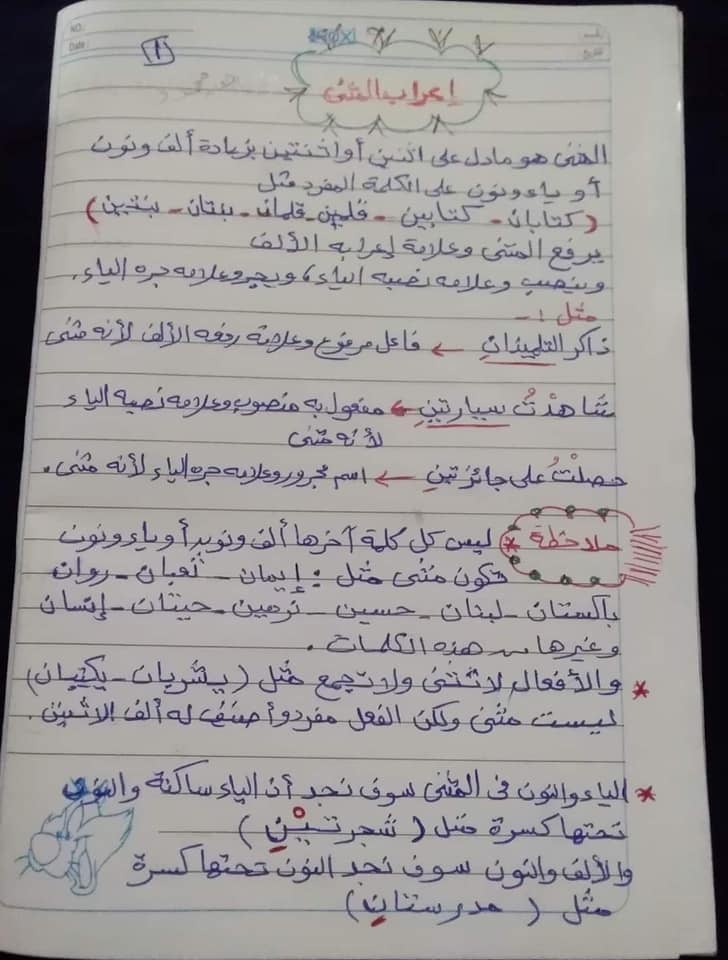 NO:
Date:
١
إعراب المثنى
المثنى هو ما دل على اثنين أو اثنتين بزيادة ألف ونون
أو ياء ونون على الكلمة المفرد مثل
(كتابان - كتابين - قلمين - قلمان - بنتان - بنتين)
يرفع المثنى وعلامة إعرابه الألف
وينصب وعلامه نصبه الياء، ويجر وعلامه جره الياء.
مثل :-
ذاكر التلميذانِ ← فاعل مرفوع وعلامة رفعه الألف لأنه مثنى
شاهدْتُ سيارتينِ ← مفعول به منصوب وعلامه نصبه الياء
لأنه مثنى
حصلْتُ على جائزتينِ ← اسم مجرور وعلامه جره الياء لأنه مثنى.
ملاحظة * ليس كل كلمة آخرها ألف ونون أو ياء ونون
تكون مثنى مثل : إيمان - ثعبان - روان
باكستان - لبنان - حسين - نرمين - حيتان - إنسان
وغيرها من هذه الكلمات.
* والأفعال لا تثنى ولا تجمع مثل (يشربان - يكتبان)
ليست مثنى ولكن الفعل مفرد وأضيف له ألف الاثنين.
* الياء والنون فى المثنى سوف نجد أن الياء ساكنة والنون
تحتها كسرة مثل (شجرتيْنِ)
والألف والنون سوف نجد النون تحتها كسرة
مثل (مدرستانِ)